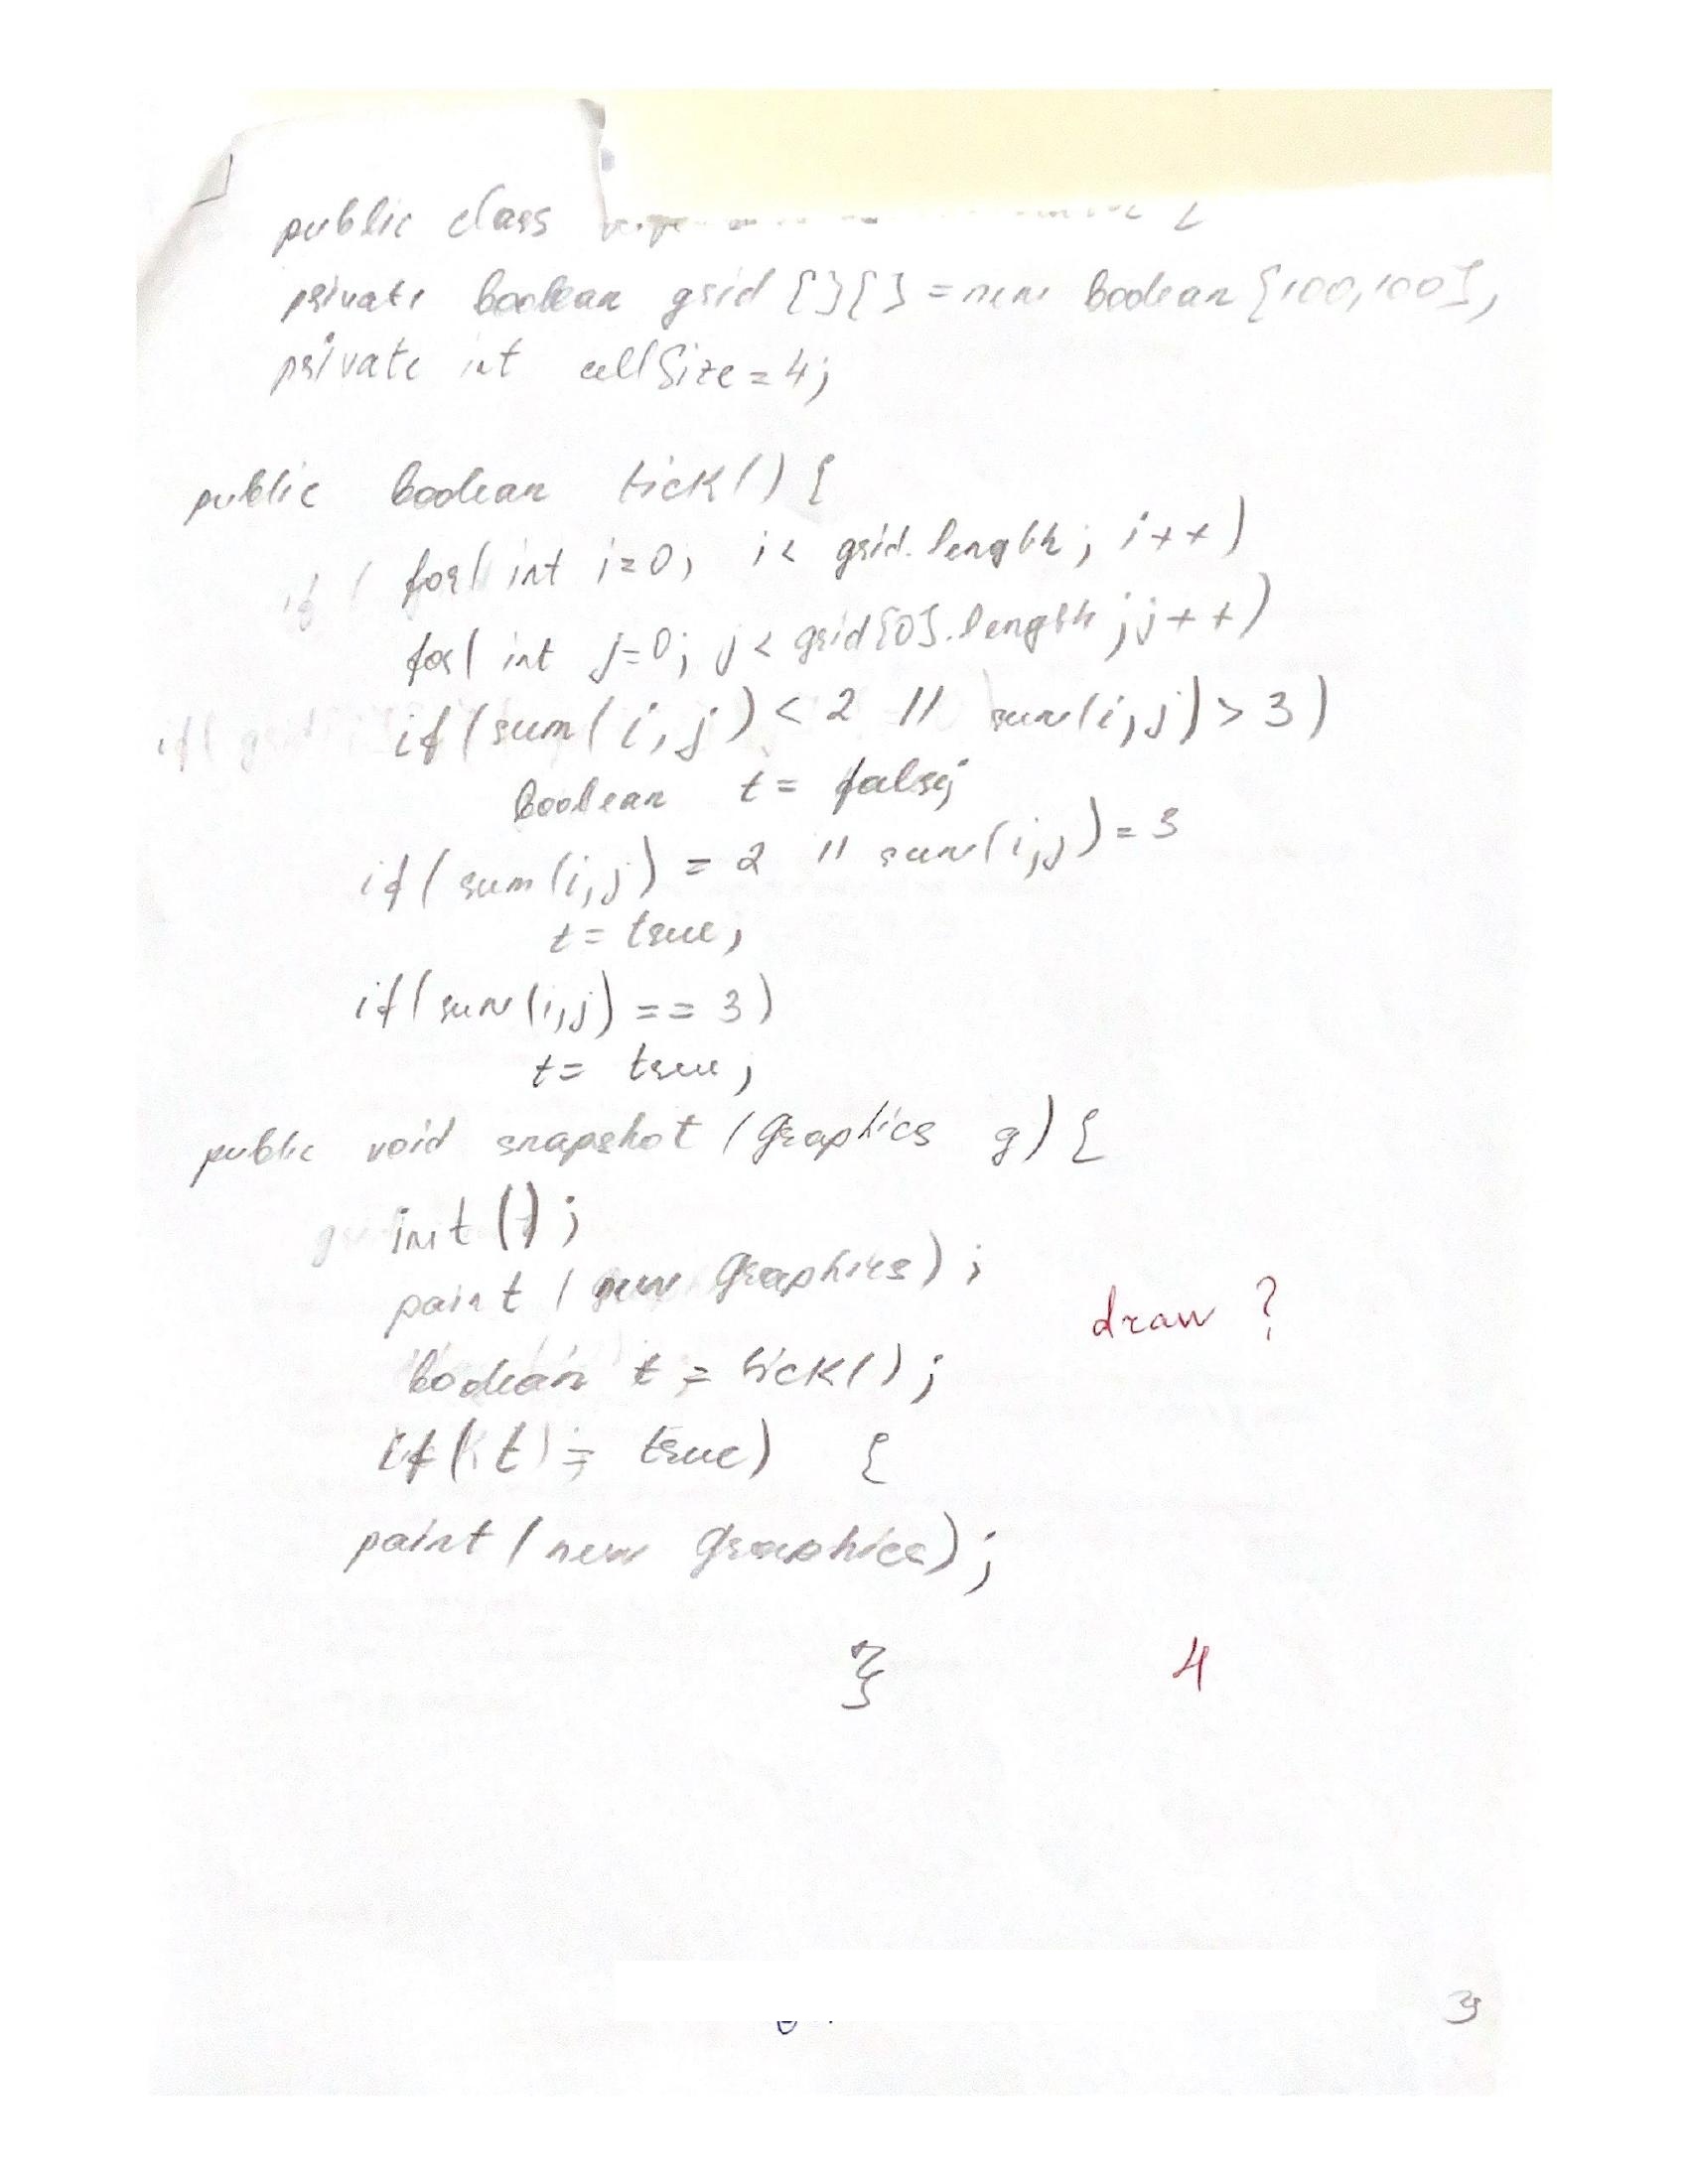 public class {
private boolean grid {}{} = new boolean {100,100};
private int cellSize = 4;
public boolean tick() {
if ( for( int i=0; i< grid.length; i++)
for( int j=0; j< grid{0}.length; j++)
if( if (sum(i,j) < 2 || sum(i,j) > 3)
boolean t = false;
if( sum(i,j) = 2 || sum(i,j) = 3
t = true;
if(sum(i,j) == 3)
t = true;
public void snapshot (Graphics g) {
init();
paint ( new Graphics);
draw ?
boolean t = tick();
if( t = true) {
paint ( new Graphics);
}
}
4